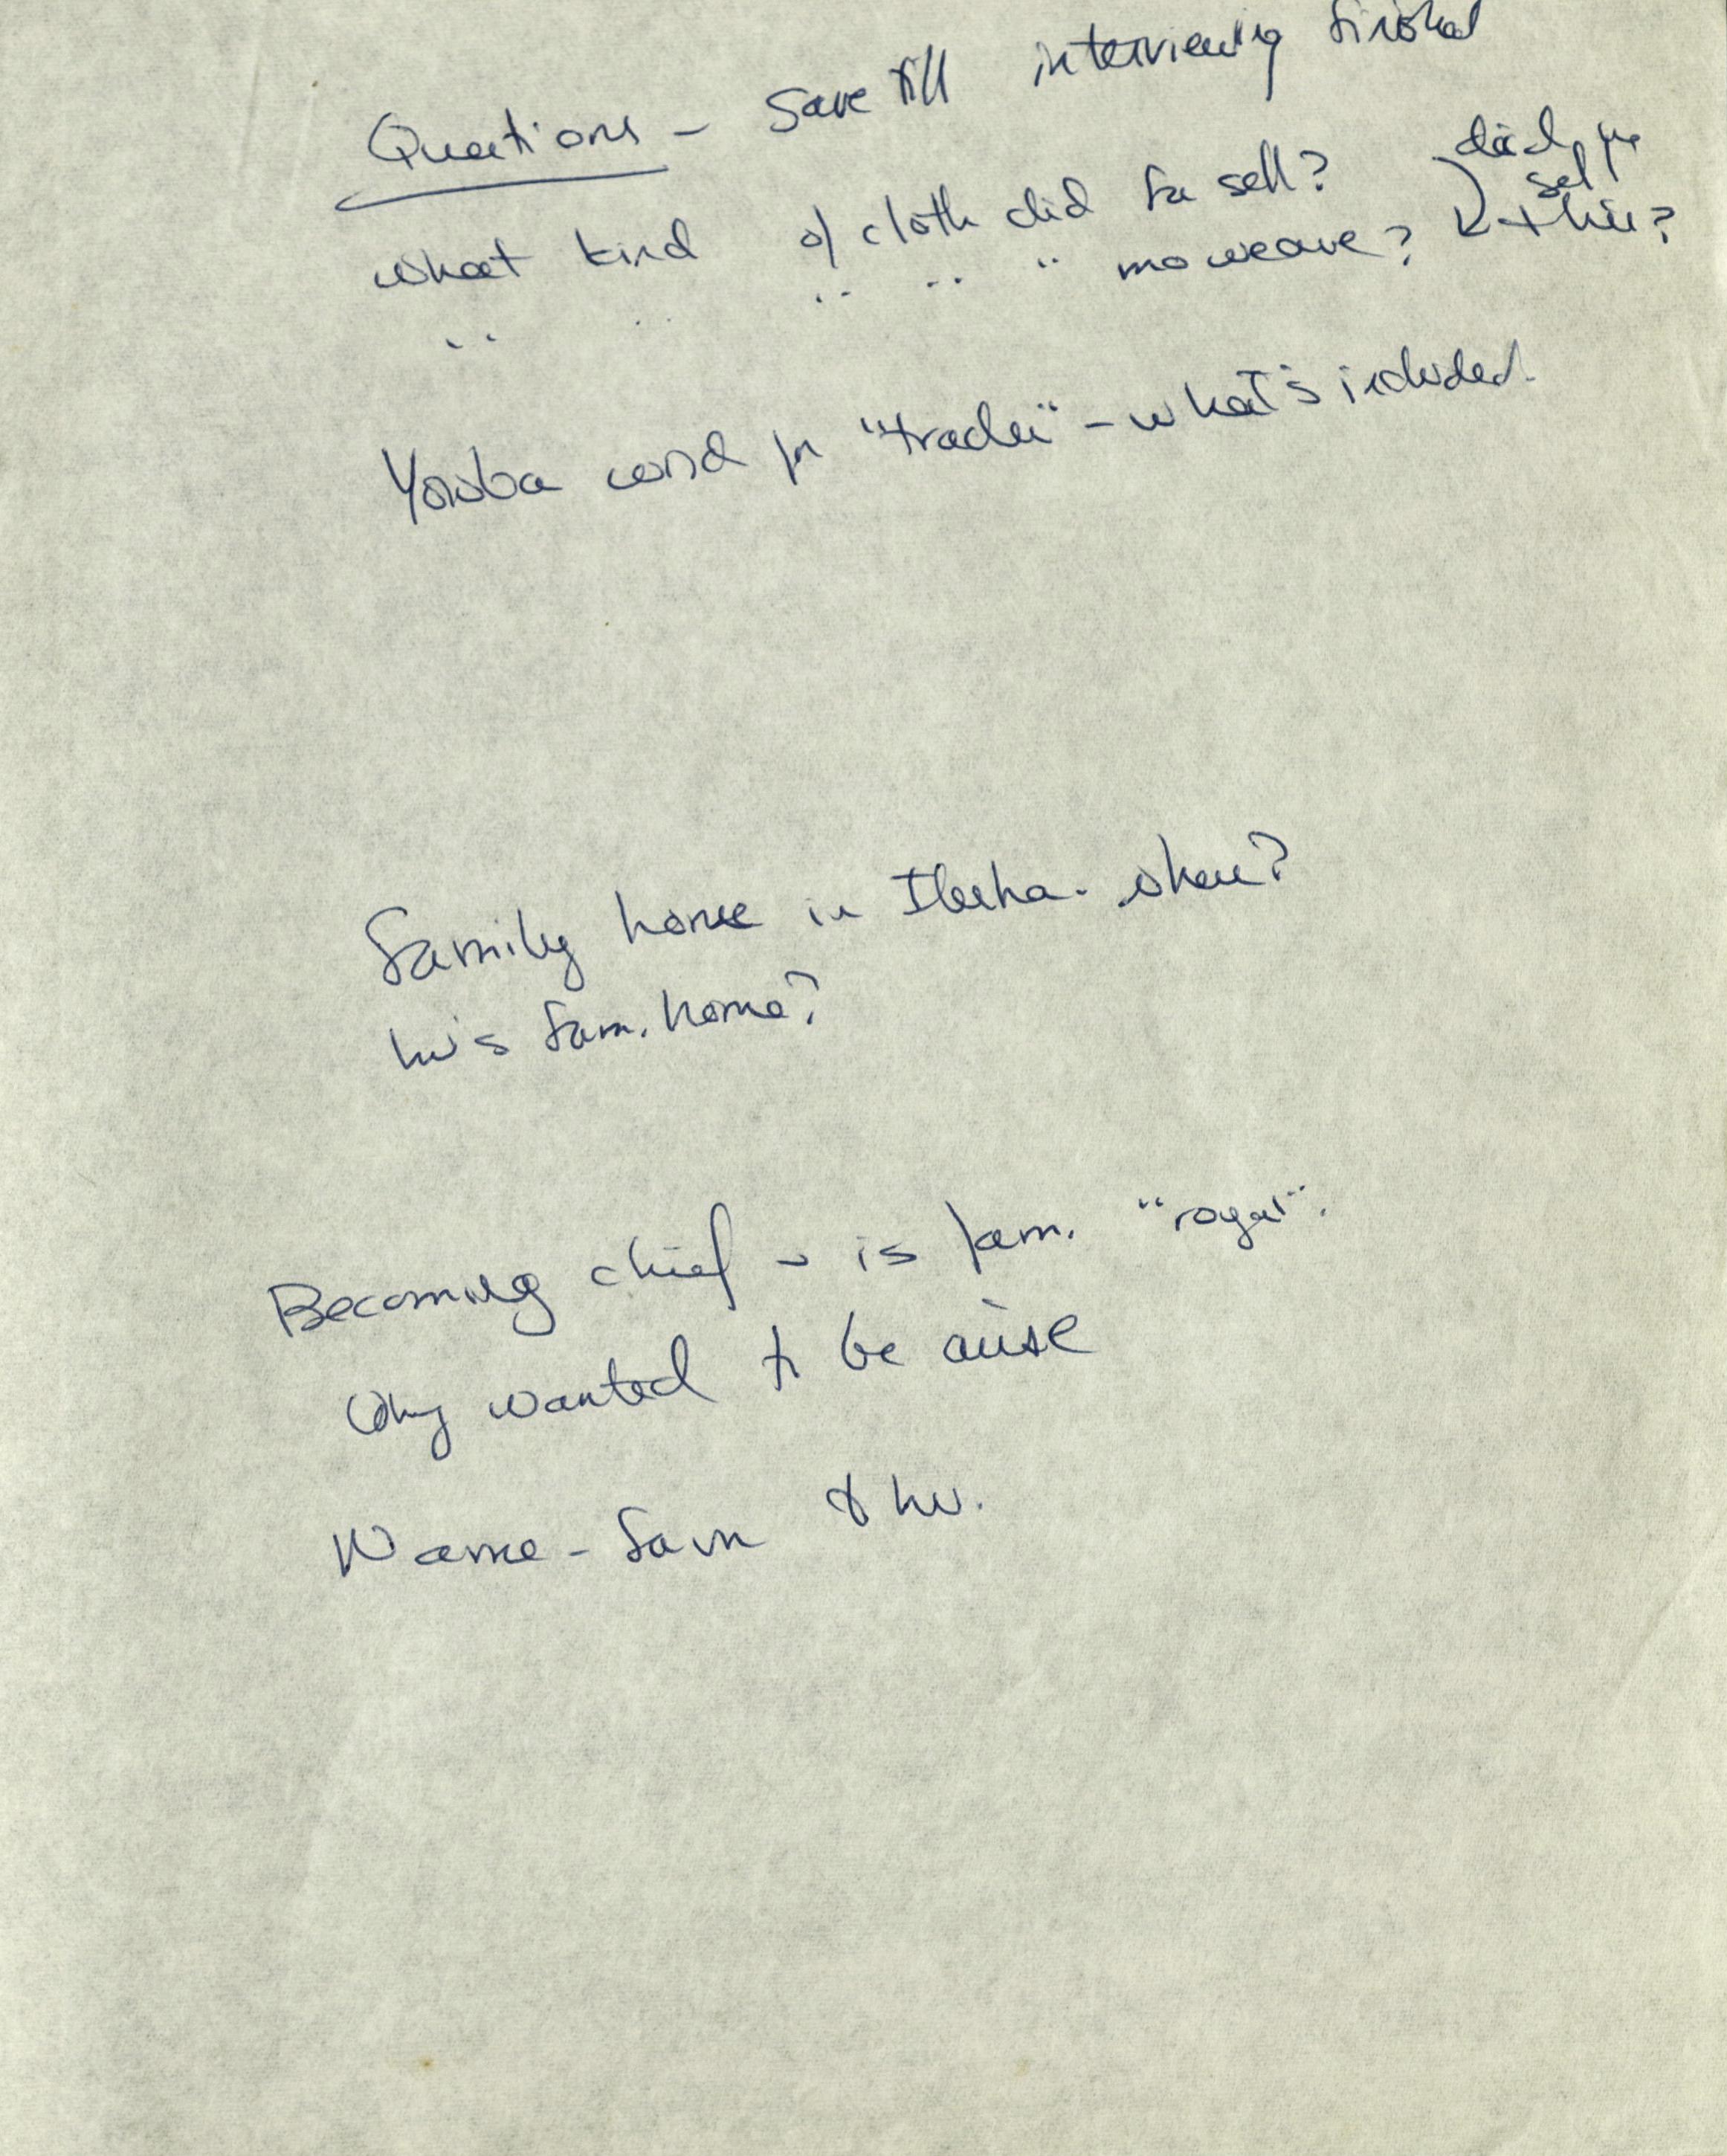 Questions - Save till interviewing finished
what kind of cloth did fa sell? did fa
" " " " " mo weave? sell this?
Yoruba word for "trader" - what's included.
Family home in Ilesha. where?
hu's fam. home?
Becoming chief - is fam. "royal".
Why wanted to be
Name - fam & hu.